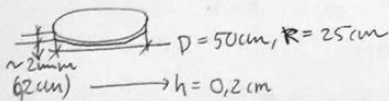 D = 50cm, R = 25cm
~2mm
(0,2cm) → h = 0,2cm